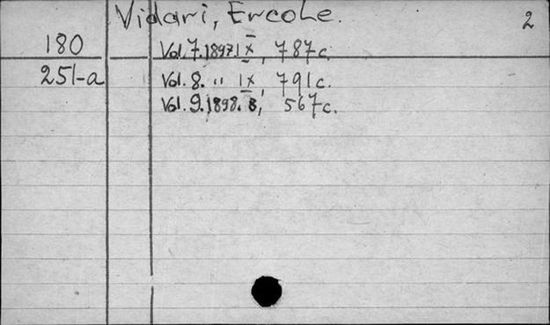 Vidari, Ercole. 2
180 Vol. 7. 1897. IX, 787 c.
251-a Vol. 8. " IX, 791 c.
Vol. 9. 1898. 8, 567 c.